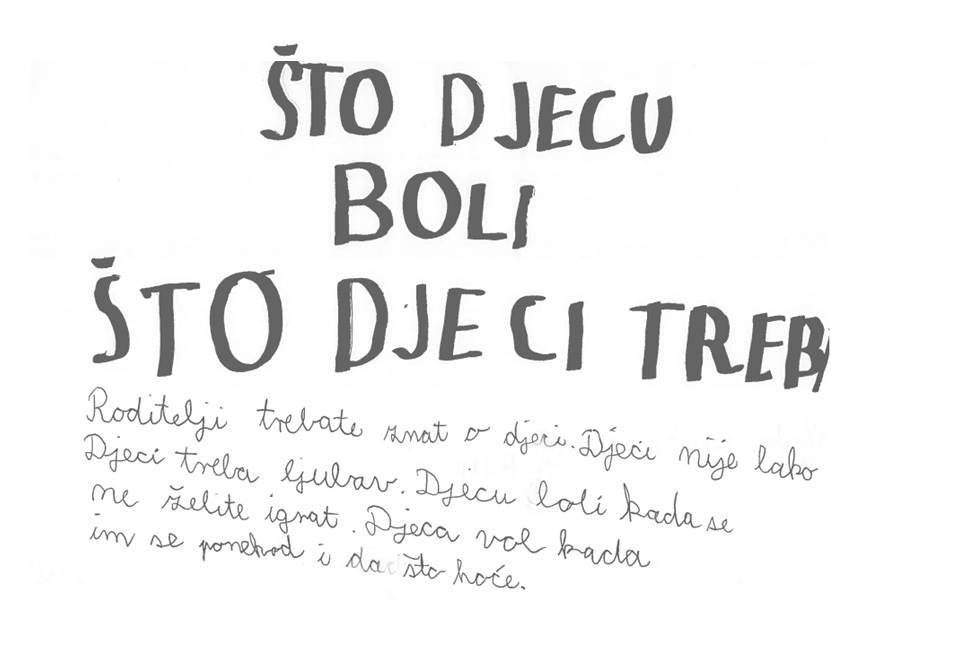 ŠTO DJECU
BOLI
ŠTO DJECI TREBA
Roditelji trebate znat o djeci. Djeci nije lako
Djeci treba ljubav. Djecu boli kada se
ne želite igrat. Djeca vol kada
im se ponekod i da što hoće.